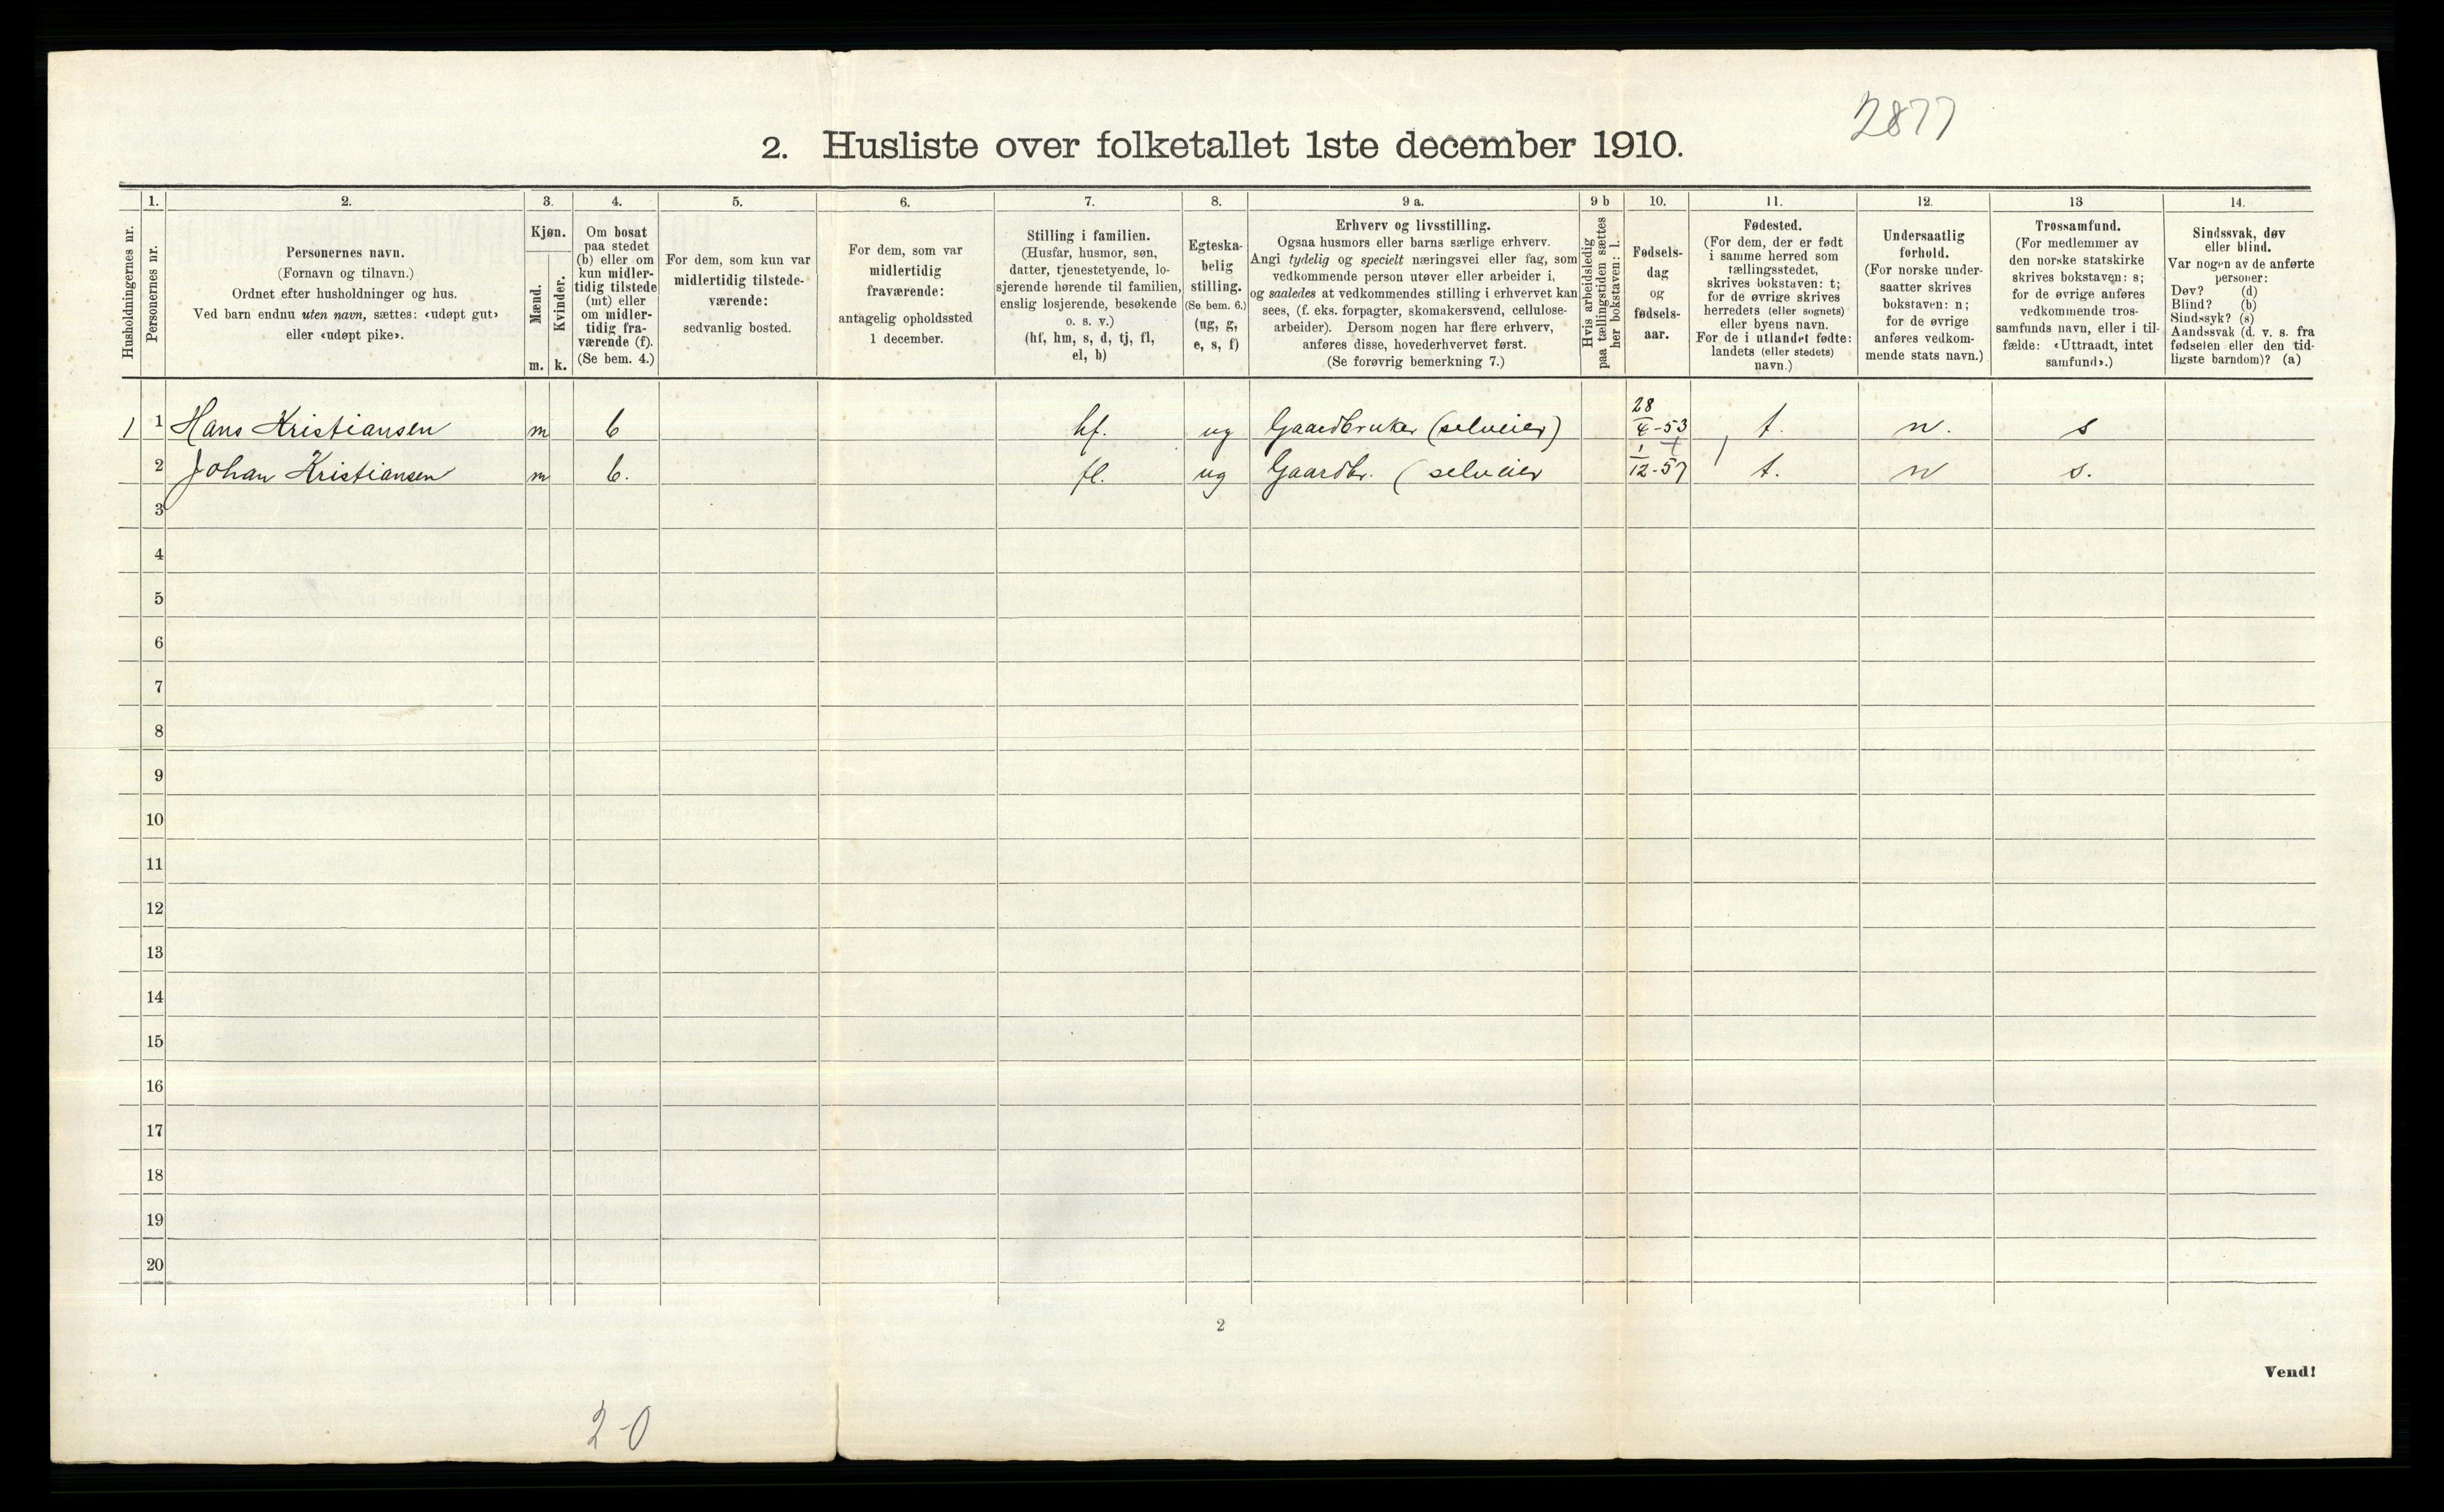 2877
2. Husliste over folketallet 1ste december 1910.
Husholdningernes nr.
1.
Personernes nr.
2.
Personernes navn.
(Fornavn og tilnavn.)
Ordnet efter husholdninger og hus.
Ved barn endnu uten navn, sættes: «udøpt gut»
eller «udøpt pike».
3.
Kjøn.
Mænd.
m.
Kvinder.
k.
4.
Om bosat
paa stedet
(b) eller om
kun midler-
tidig tilstede
(mt) eller
om midler-
tidig fra-
værende (f).
(Se bem. 4.)
5.
For dem, som kun var
midlertidig tilstede-
værende:
sedvanlig bosted.
6.
For dem, som var
midlertidig
fraværende:
antagelig opholdssted
1 december.
7.
Stilling i familien.
(Husfar, husmor, søn,
datter, tjenestetyende, lo-
sjerende hørende til familien,
enslig losjerende, besøkende
o. s. v.)
(hf, hm, s, d, tj, fl,
el, b)
8.
Egteska-
belig
stilling.
(Se bem. 6.)
(ug, g,
e, s, f)
9 a.
Erhverv og livsstilling.
Ogsaa husmors eller barns særlige erhverv.
Angi tydelig og specielt næringsvei eller fag, som
vedkommende person utøver eller arbeider i,
og saaledes at vedkommendes stilling i erhvervet kan
sees, (f. eks. forpagter, skomakersvend, cellulose-
arbeider). Dersom nogen har flere erhverv,
anføres disse, hovederhvervet først.
(Se forøvrig bemerkning 7.)
9 b
Hvis arbeidsledig
paa tællingstiden sættes
her bokstaven: l.
10.
Fødsels-
dag
og
fødsels-
aar.
11.
Fødested.
(For dem, der er født
i samme herred som
tællingsstedet,
skrives bokstaven: t;
for de øvrige skrives
herredets (eller sognets)
eller byens navn.
For de i utlandet fødte:
landets (eller stedets)
navn.)
12.
Undersaatlig
forhold.
(For norske under-
saatter skrives
bokstaven: n;
for de øvrige
anføres vedkom-
mende stats navn.)
13
Trossamfund.
(For medlemmer av
den norske statskirke
skrives bokstaven: s;
for de øvrige anføres
vedkommende tros-
samfunds navn, eller i til-
fælde: «Uttraadt, intet
samfund».)
14.
Sindssvak, døv
eller blind.
Var nogen av de anførte
personer:
Døv? (d)
Blind? (b)
Sindssyk? (s)
Aandssvak (d. v. s. fra
fødselen eller den tid-
ligste barndom)? (a)
1 1 Hans Kristiansen m b hf. ug Gaardbruker (selveier) 28/4-53 t. n. s
2 Johan Kristiansen m b. fl. ug Gaardbr. (selveier 1/12-57 t. n s.
3
4
5
6
7
8
9
10
11
12
13
14
15
16
17
18
19
20
2
Vend!
2-0